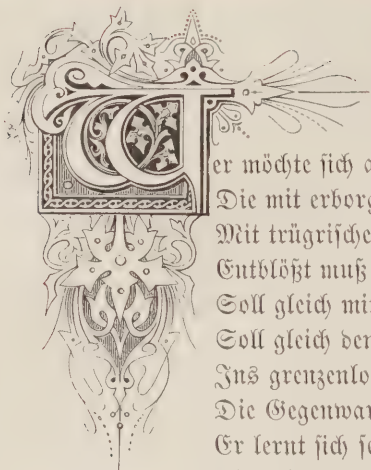 Wer möchte sich a
Die mit erborg
Mit trügrische
Entblößt muß
Soll gleich mi
Soll gleich den
Ins grenzenlo
Die Gegenwar
Er lernt sich se